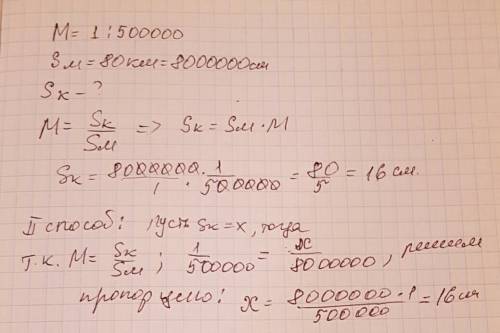 M = 1:500000
Sм = 80 км = 8000000 см
Sк - ?
M = Sк/Sм => Sк = Sм · M
Sк = 8000000/1 · 1/500000 = 80/5 = 16 см.
II способ: пусть Sк = x, тогда
т.к. M = Sк/Sм ; 1/500000 = x/8000000, решаем
пропорцию: x = 8000000·1/500000 = 16 см